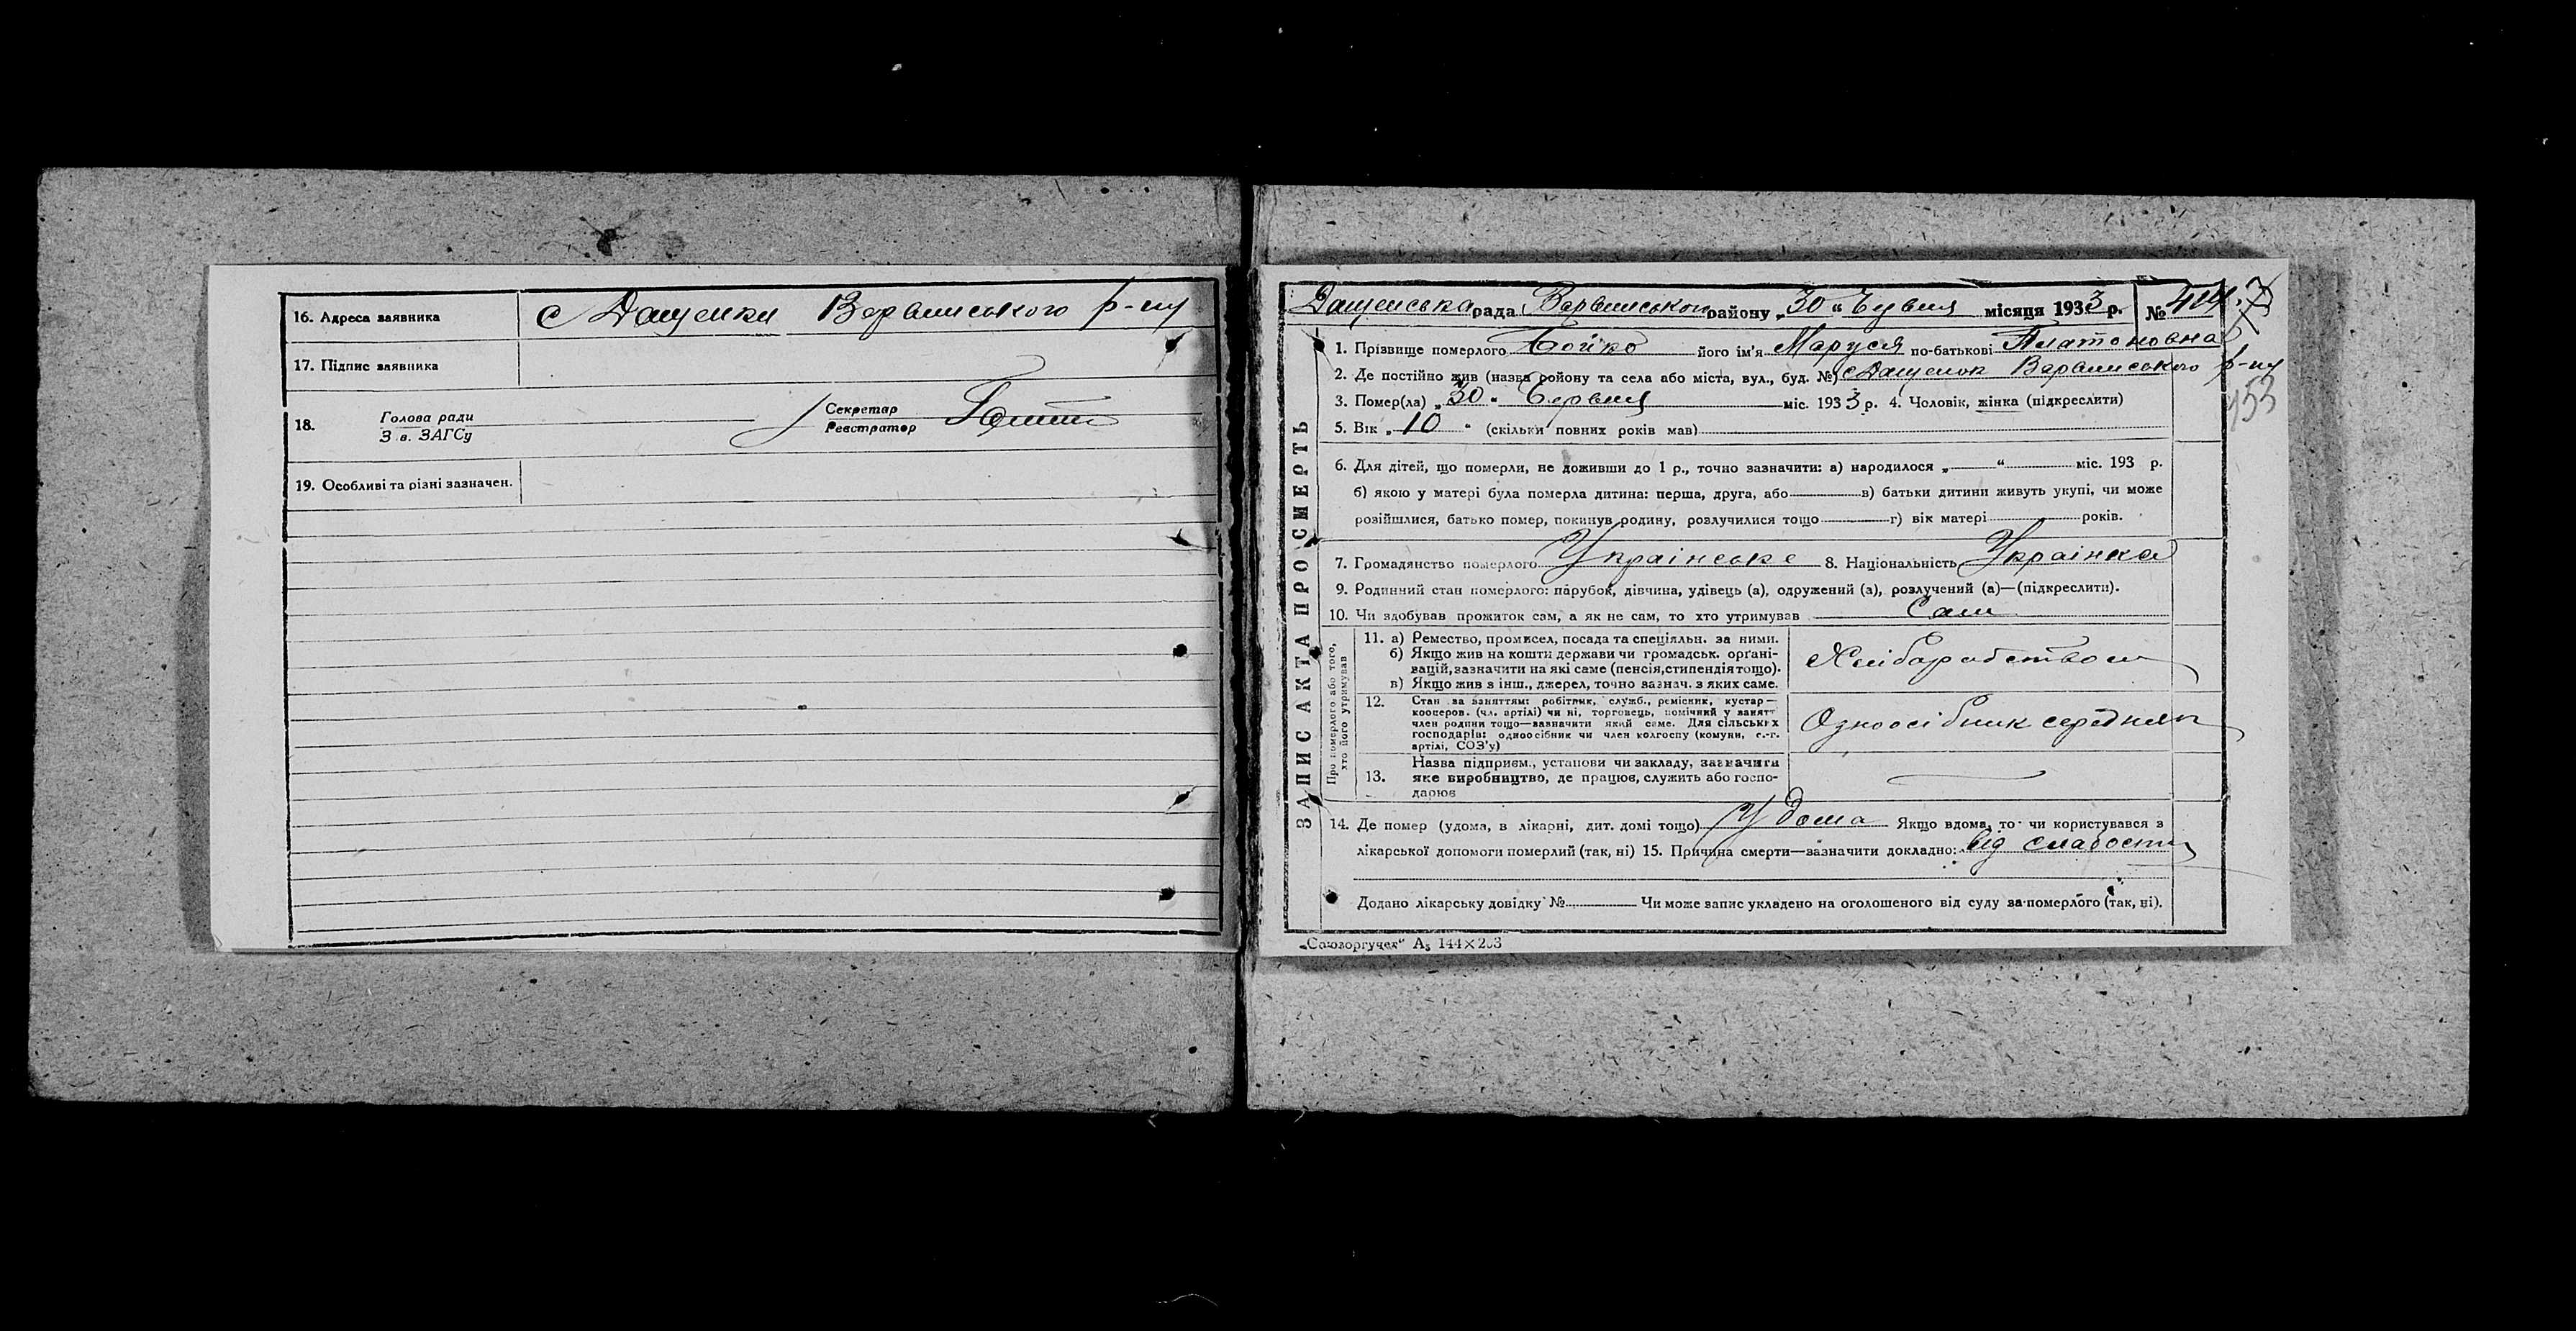 16. Адреса заявника с Дащенки Варвинського р-ну
17. Підпис заявника
18. Голова ради
З в. ЗАГСу
Секретар
Реєстратор
19. Особливі та різні зазначен.
ЗАПИС АКТА ПРО СМЕРТЬ
Дащенська рада Варвинського району „30“ Червня місяця 1933 р. №
1. Прізвище померлого Бойко його ім'я Маруся по-батькові Платоновна
2. Де постійно жив (назва району та села або міста, вул., буд. №) с Дащенок Варвинського р-ну
3. Помер(ла) „30“ Червня міс. 1933 р. 4. Чоловік, жінка (підкреслити)
153
5. Вік „10“ (скільки повних років мав)
6. Для дітей, що померли, не доживши до 1 р., точно зазначити: а) народилося „ “ міс. 193 р.
б) якою у матері була померла дитина: перша, друга, або в) батьки дитини живуть укупі, чи може
розійшлися, батько помер, покинув родину, розлучилися тощо г) вік матері років.
7. Громадянство померлого Українське 8. Національність Українка
9. Родинний стан померлого: парубок, дівчина, удівець (а), одружений (а), розлучений (а)—(підкреслити).
10. Чи здобував прожиток сам, а як не сам, то хто утримував Сам
Про померлого або того, хто його утримував
11. а) Ремество, промисел, посада та спеціяльн. за ними.
б) Якщо жив на кошти держави чи громадськ. органі-
зацій, зазначити на які саме (пенсія, стипендія тощо).
в) Якщо жив з інш., джерел, точно зазнач. з яких саме.
Хліборобством
12. Стан за заняттям: робітник, служб., ремісник, кустар—
кооперов. (чл. артілі) чи ні, торговець, помічний у занятт
член родини тощо—зазначити який саме. Для сільських
господарів: одноосібник чи член колгоспу (комуни, с.-г.
артілі, СОЗ'у)
Одноосібник середняк
13. Назва підприєм., установи чи закладу, зазначити
яке виробництво, де працює, служить або госпо-
дарює
14. Де помер (удома, в лікарні, дит. домі тощо) У дома Якщо вдома, то чи користувався з
лікарської допомоги померлий (так, ні) 15. Причина смерти—зазначити докладно: Від слабости
Додано лікарську довідку № Чи може запис укладено на оголошеного від суду за померлого (так, ні).
„Союзоргучет“ А₅ 144×203